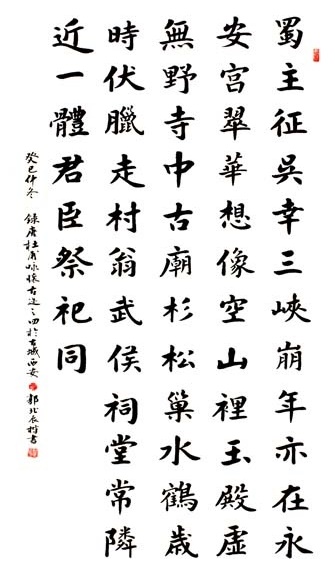 蜀主征吳幸三峽崩年亦在永
安宮翠華想像空山裡玉殿虛
無野寺中古廟杉松巢水鶴歲
時伏臘走村翁武侯祠堂常隣
近一體君臣祭祀同
癸巳仲冬 錄唐杜甫咏懷古迹之四於古城西安 書